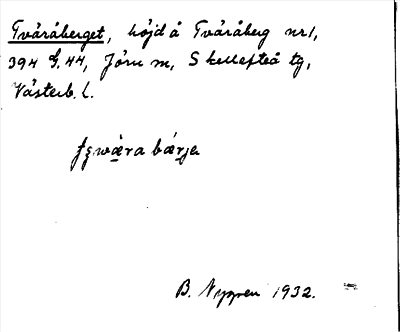 Tväråberget, höjd å Tväråberg nr1,
394 S.44, Jörn m, Skellefteå tg,
Västerb. l.
B. Nygren 1932.